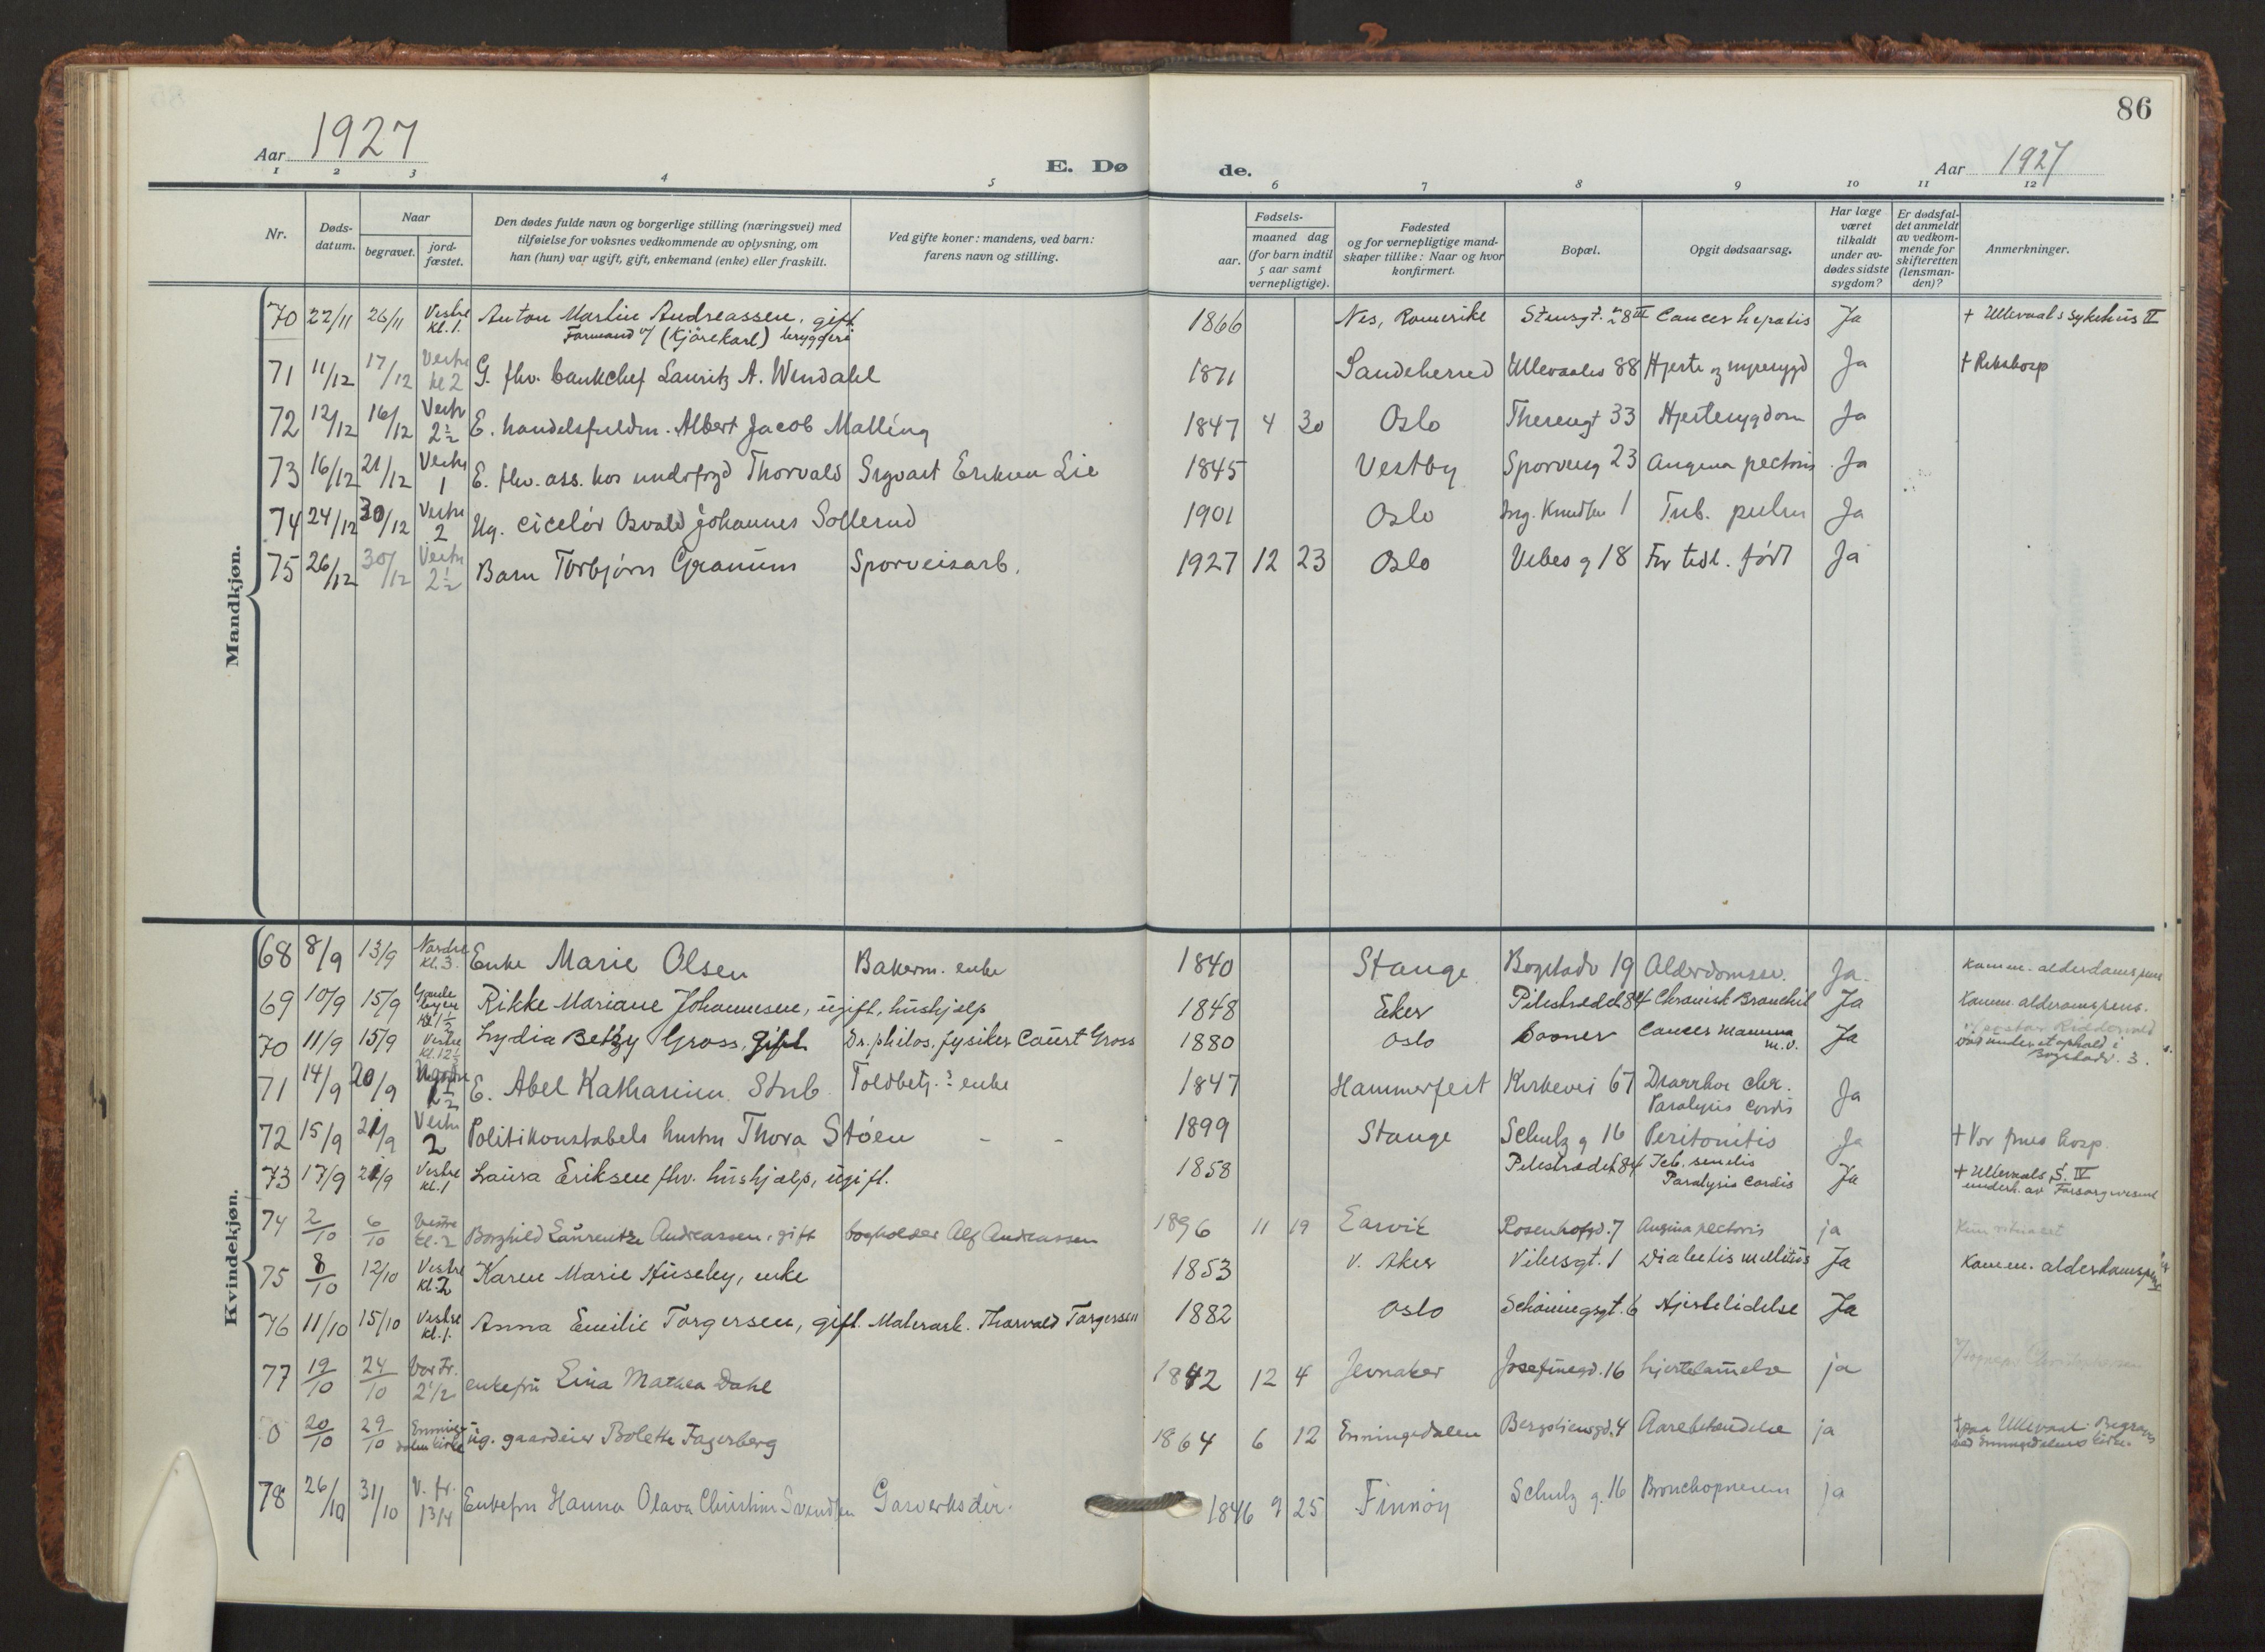 86
Aar 1927
E. Døde.
Aar 1927
1 2 3 4 5 6 7 8 9 10 11 12
Nr.
Døds-datum.
Naar
begravet.
jord-fæstet.
Den dødes fulde navn og borgerlige stilling (næringsvei) med
tilføielse for voksnes vedkommende av oplysning, om
han (hun) var ugift, gift, enkemand (enke) eller fraskilt.
Ved gifte koner: mandens, ved barn:
farens navn og stilling.
Fødsels-
aar.
maaned dag
(for barn indtil
5 aar samt
vernepligtige).
Fødested
og for vernepligtige mand-
skaper tillike: Naar og hvor
konfirmert.
Bopæl.
Opgit dødsaarsag.
Har læge
været
tilkaldt
under av-
dødes sidste
sygdom?
Er dødsfal-
det anmeldt
av vedkom-
mende for
skifteretten
(lensman-
den)?
Anmerkninger.
Mandkjøn.
70 22/11 26/11 Vestre kl. 1. Anton Martin Andreassen, gift 1866 Nes, Romerike Stensgt. 28 III Cancer hepatis Ja + Ullevaals sykehus II
Formand v/ (Kjørekarl) bryggeri
71 11/12 17/12 Vestre kl 2 G. fhv. bankchef Lauritz A. Wendahl 1871 Sandeherred Ullevaalsv 88 Hjerte og nyresygd Ja + Rikshosp
72 12/12 16/12 Vestr 2½ E. handelsfuldm. Albert Jacob Malling 1847 4 30 Oslo Theresgt 33 Hjertesygdom Ja
73 16/12 21/12 Vestre 1 E. fhv. ass. hos undsfogd Thorvald Sigvart Eriksen Lie 1845 Vestby Sporveisg 23 Angina pectoris Ja
74 24/12 30/12 Vestre 2 Ug. ciselør Osvald Johannes Sollerud 1901 Oslo Ing. Knudsen 1 Tub. pulm Ja
75 26/12 30/12 Vestre 2½ Barn Torbjørn Granum Sporveisarb. 1927 12 23 Oslo Vibes g 18 For tidl. født Ja
Kvindekjøn.
68 8/9 13/9 Nordre kl. 3. Enke Marie Olsen Bakerm. enke 1840 Stange Bogstadv 19 Alderdomssv. Ja. Komm. alderdomspens
69 10/9 15/9 Gamle byen Kl 1½ Rikke Mariane Johannesen, ugift, hushjelp 1848 Eker Pilestredet 84 Chronisk Bronchit Ja Komm. alderomspens.
70 11/9 15/9 Vestre kl. 12½ Lydia Betzy Gross, gift Dr. philos. fysiker Court Gross 1880 Oslo Cancer mamma m.v. Ja
var under et ophold i
Bogstadv. 3.
71 14/9 20/9 E. Abel Katharina Stub Toldbetj.s enke 1847 Hammerfest Kirkevei 67 Diarrhoe chr. Ja
Paralysis cordis
72 15/9 21/9 Vestre 2 Politikonstabels hustru Thora Støen - - 1899 Stange Schultz g 16 Peritonitis Ja + Vor frues hosp.
73 17/9 21/9 Vestre kl. 1 Laura Eriksen fhv. hushjælp, ugift. 1858 Pilestrædet 84 Deb. senilis Ja + Ullevaals S. IV
Paralysis cordis underh. av Forsorgsvesenet
74 2/10 6/10 Vestre kl. 2 Borghild Laurentze Andreassen, gift bogholder Alf Andreassen 1896 11 19 Larvik Rosenhofgd. 7 Angina pectoris ja
75 8/10 12/10 Vestre kl. 2 Karen Marie Huseby, enke 1853 V. Aker Vibesgt. 1 Diabetis mellitus Ja Komm. alderdomspens
76 11/10 15/10 Vestre kl. 1. Anna Emilie Torgersen, gift. Malerark. Thorvald Torgersen 1882 Oslo Schøningsgt. 6 Hjertelidelse Ja
77 19/10 24/10 Vor Fr. 2 1/2 enkefru Lina Mathea Dahl 1842 12 4 Jevnaker Josefinegd. 16 hjertelammelse ja
0 20/10 29/10 Enningdalen kirke ug. gaardeier Bolette Fagerberg 1864 6 12 Enningedalen Bergsliensgd. 4 Aarebetændelse ja + paa Ullevaal. Begraves
ved Enningedalens kirke.
78 26/10 31/10 V. fr. 1 3/4 Enkefru Hanna Olava Christine Svendsen Gasverksdir. 1846 9 25 Finnøy Schultz g. 16 Bronchopneum ja